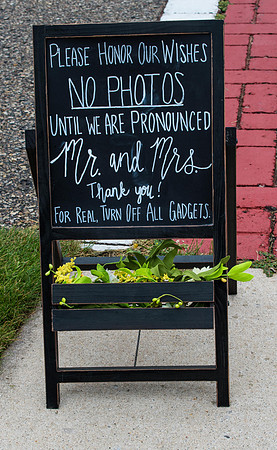 Please Honor Our Wishes
No Photos
Until We Are Pronounced
Mr. and Mrs.
Thank you!
For Real, Turn Off All Gadgets.